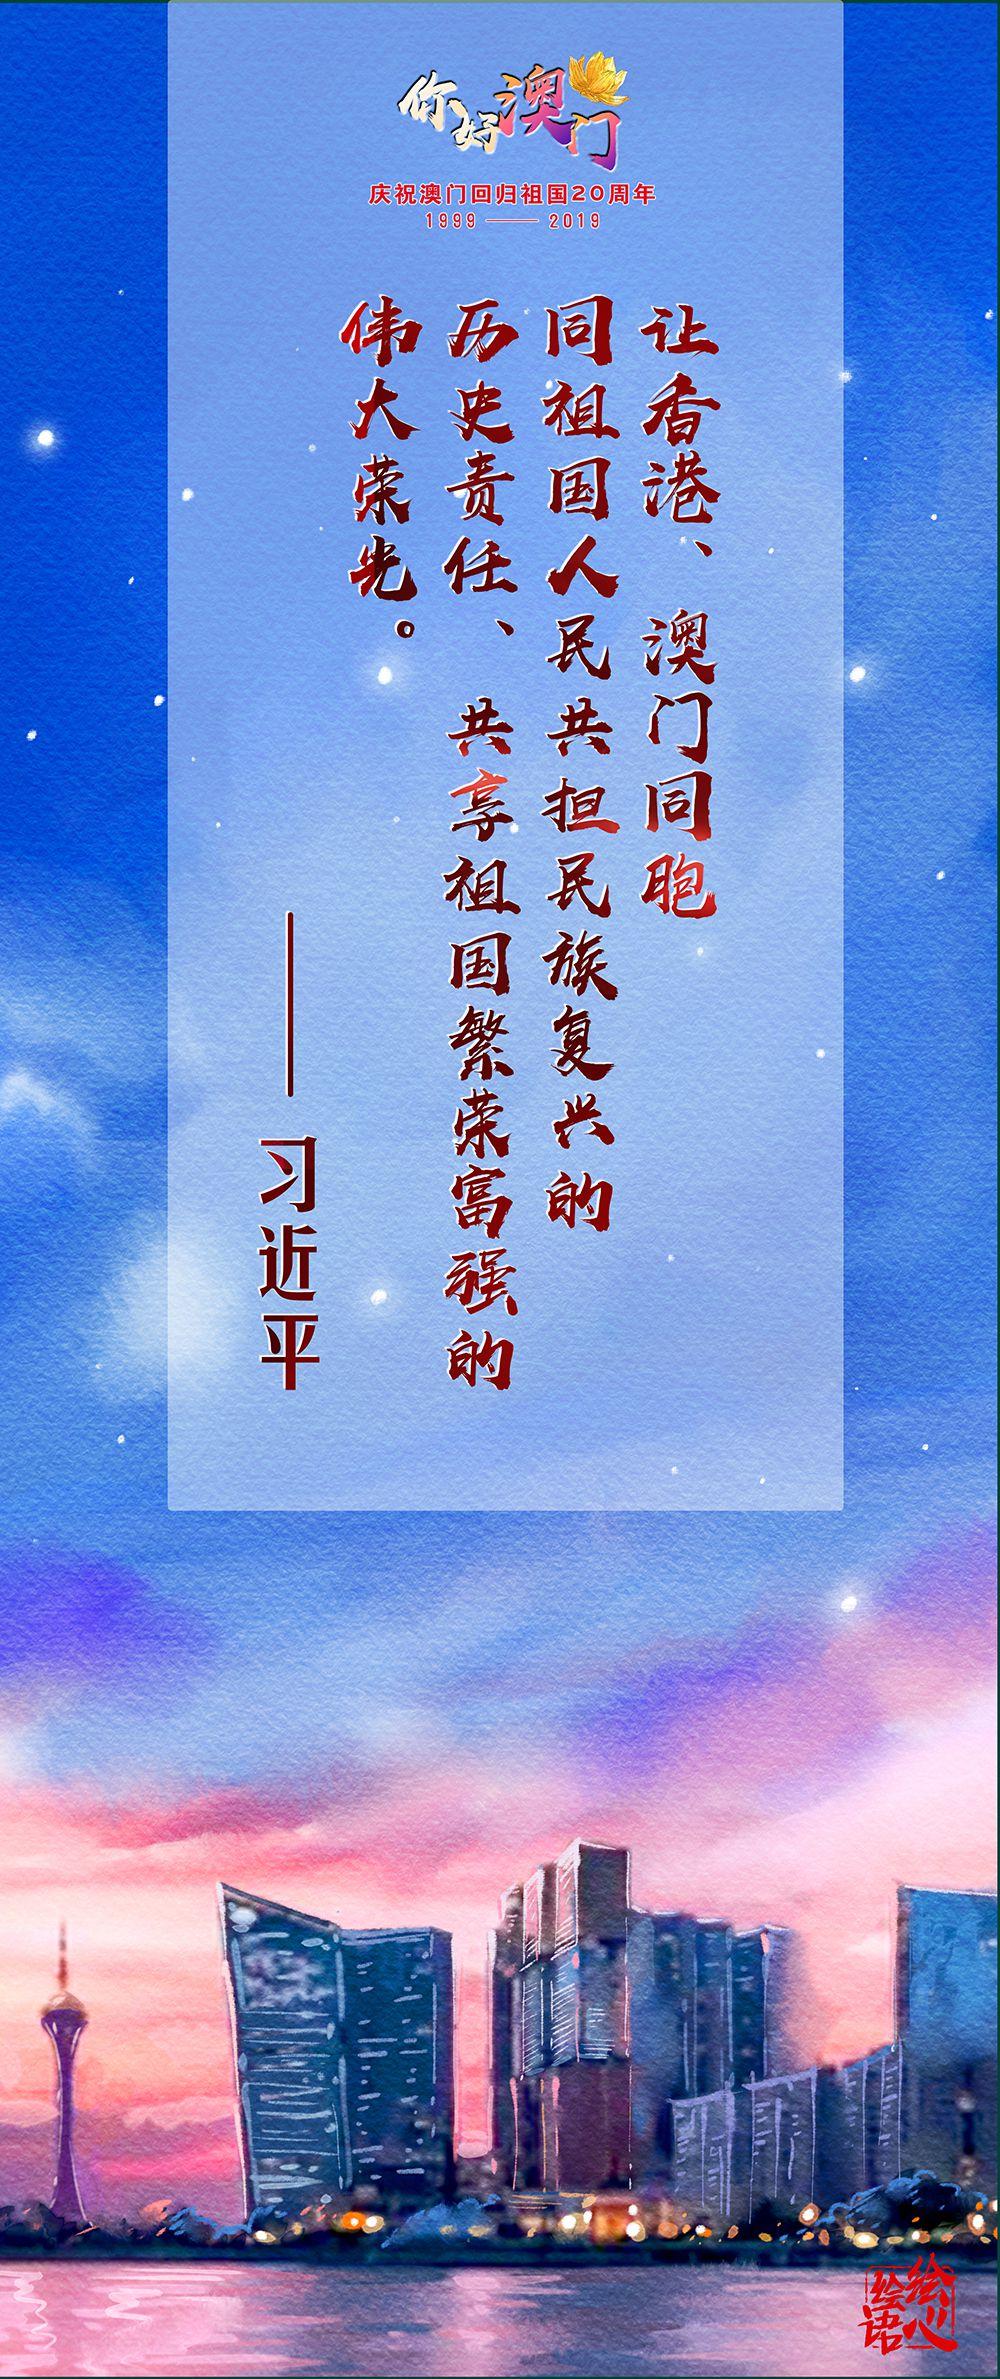 你好澳门
庆祝澳门回归祖国20周年
1999——2019
让香港、澳门同胞
同祖国人民共担民族复兴的
历史责任、共享祖国繁荣富强的
伟大荣光。
——习近平
绘心
绘语